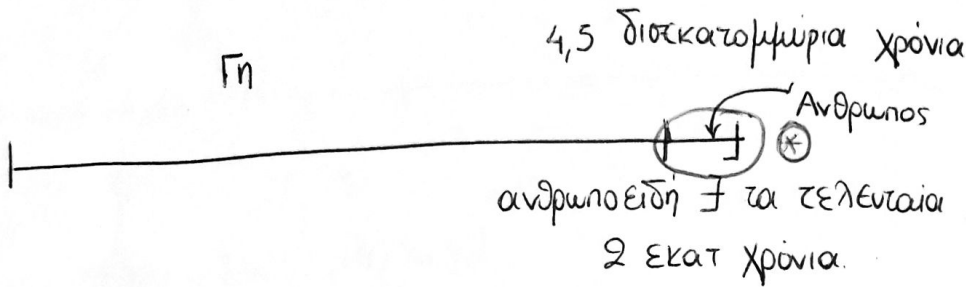 4,5 δισεκατομμύρια χρόνια
Γη
Ανθρωπος
*
ανθρωποειδή ∃ τα τελευταία
2 εκατ χρόνια.